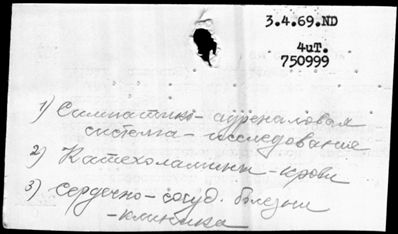 3.4.69.ND
4иТ.
750999
1) Симпатико-адреналовая
система - исследование
2) Катехоламины - крови
3) сердечно-сосуд. болезни
- клиника